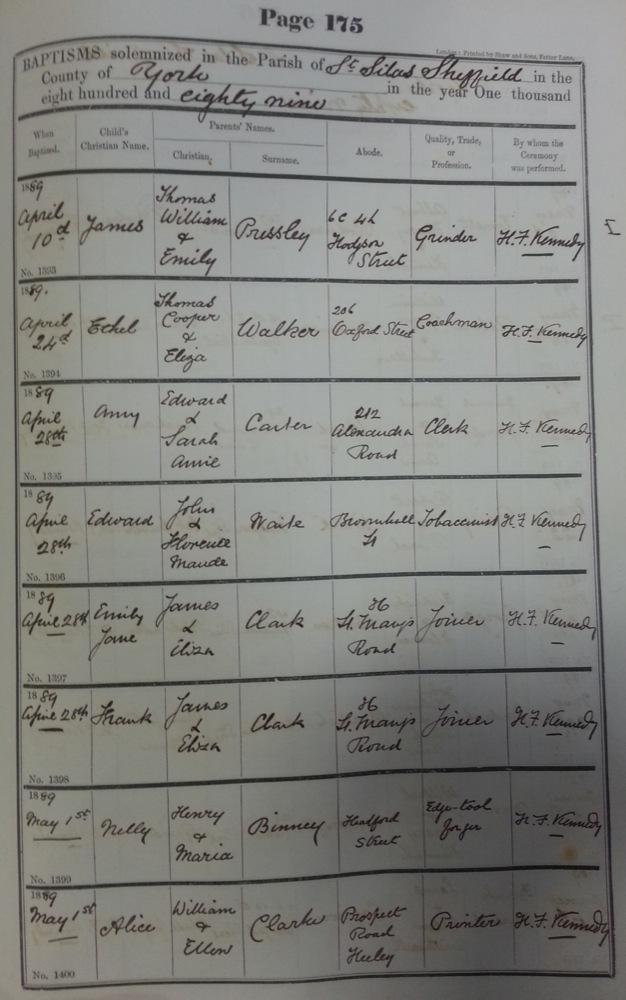 Page 175
London: Printed by Shaw and Sons, Fetter Lane.
BAPTISMS solemnized in the Parish of St Silas Sheffield in the
County of York in the year One thousand
eight hundred and eighty nine
When Baptized.
Child's Christian Name.
Parents' Names.
Christian.
Surname.
Abode.
Quality, Trade, or Profession.
By whom the Ceremony was performed.
1889
April
10d
No. 1393
James
Thomas
William
&
Emily
Pressley
6c 4h
Hodgson
Street
Grinder
H. F. Kennedy
1889.
April
24d
No. 1394
Ethel
Thomas
Cooper
&
Eliza
Walker
206
Oxford Street
Coachman
H. F. Kennedy
1889
April
28th
No. 1395
Amy
Edward
&
Sarah
Annie
Carter
212
Alexandra
Road
Clerk
H. F. Kennedy
1889
April
28th
No. 1396
Edward
John
&
Florence
Maude
Waite
Broomhall
St
Tobacconist
H. F. Kennedy
1889
April 28th
No. 1397
Emily
Jane
James
&
Eliza
Clark
36
St. Mary's
Road
Joiner
H. F. Kennedy
1889
April 28th
No. 1398
Frank
James
&
Eliza
Clark
36
St. Mary's
Road
Joiner
H. F. Kennedy
1889
May 1st
No. 1399
Nelly
Henry
&
Maria
Binney
Headford
Street
Edge-tool
forger
H. F. Kennedy
1889
May 1st
No. 1400
Alice
William
&
Ellen
Clarke
Prospect
Road
Heeley
Printer
H. F. Kennedy